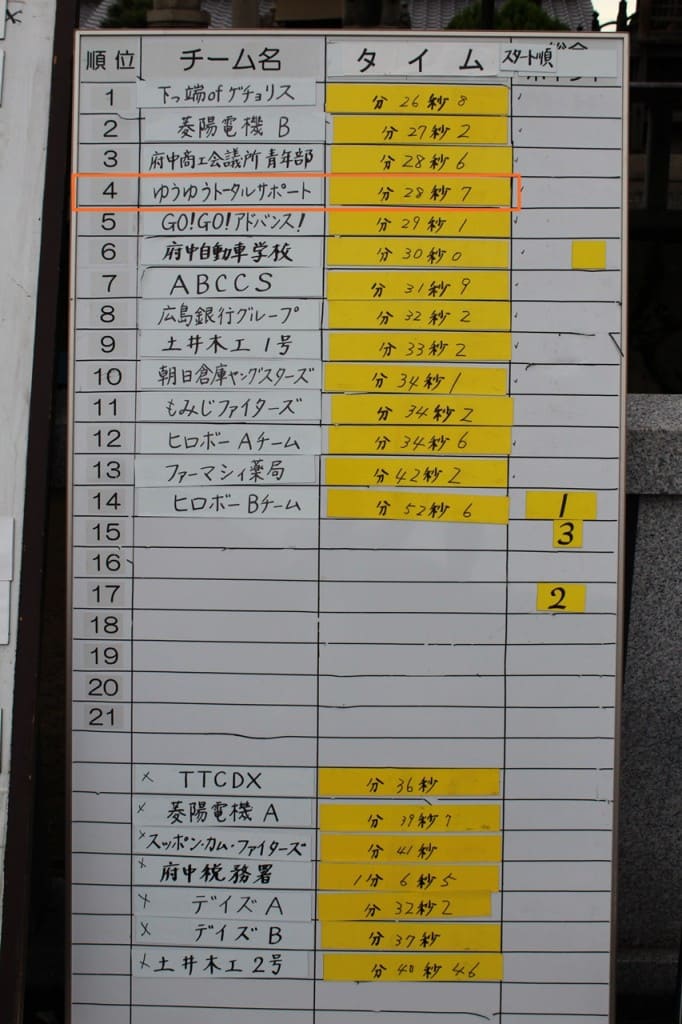 順位 チーム名 タイム スタート順
1 下っ端ofゲチョリス 分 26秒 8
2 菱陽電機 B 分 27秒 2
3 府中商工会議所 青年部 分 28秒 6
4 ゆうゆうトータルサポート 分 28秒 7
5 GO!GO!アドバンス! 分 29秒 1
6 府中自動車学校 分 30秒 0
7 ABCCS 分 31秒 9
8 広島銀行グループ 分 32秒 2
9 土井木工 1号 分 33秒 2
10 朝日倉庫ヤングスターズ 分 34秒 1
11 もみじファイターズ 分 34秒 2
12 ヒロボー Aチーム 分 34秒 6
13 ファーマシィ薬局 分 42秒 2
14 ヒロボー Bチーム 分 52秒 6 1
15 3
16
17 2
18
19
20
21
× TTCDX 分 36秒
× 菱陽電機 A 分 39秒 7
× スッポン・カム・ファイターズ 分 41秒
× 府中税務署 1分 6秒 5
× デイズ A 分 32秒 2
× デイズ B 分 37秒
× 土井木工 2号 分 40秒 46